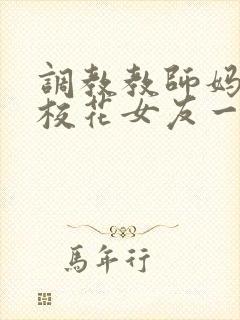 調教教師妈
校花女友一
馬年行